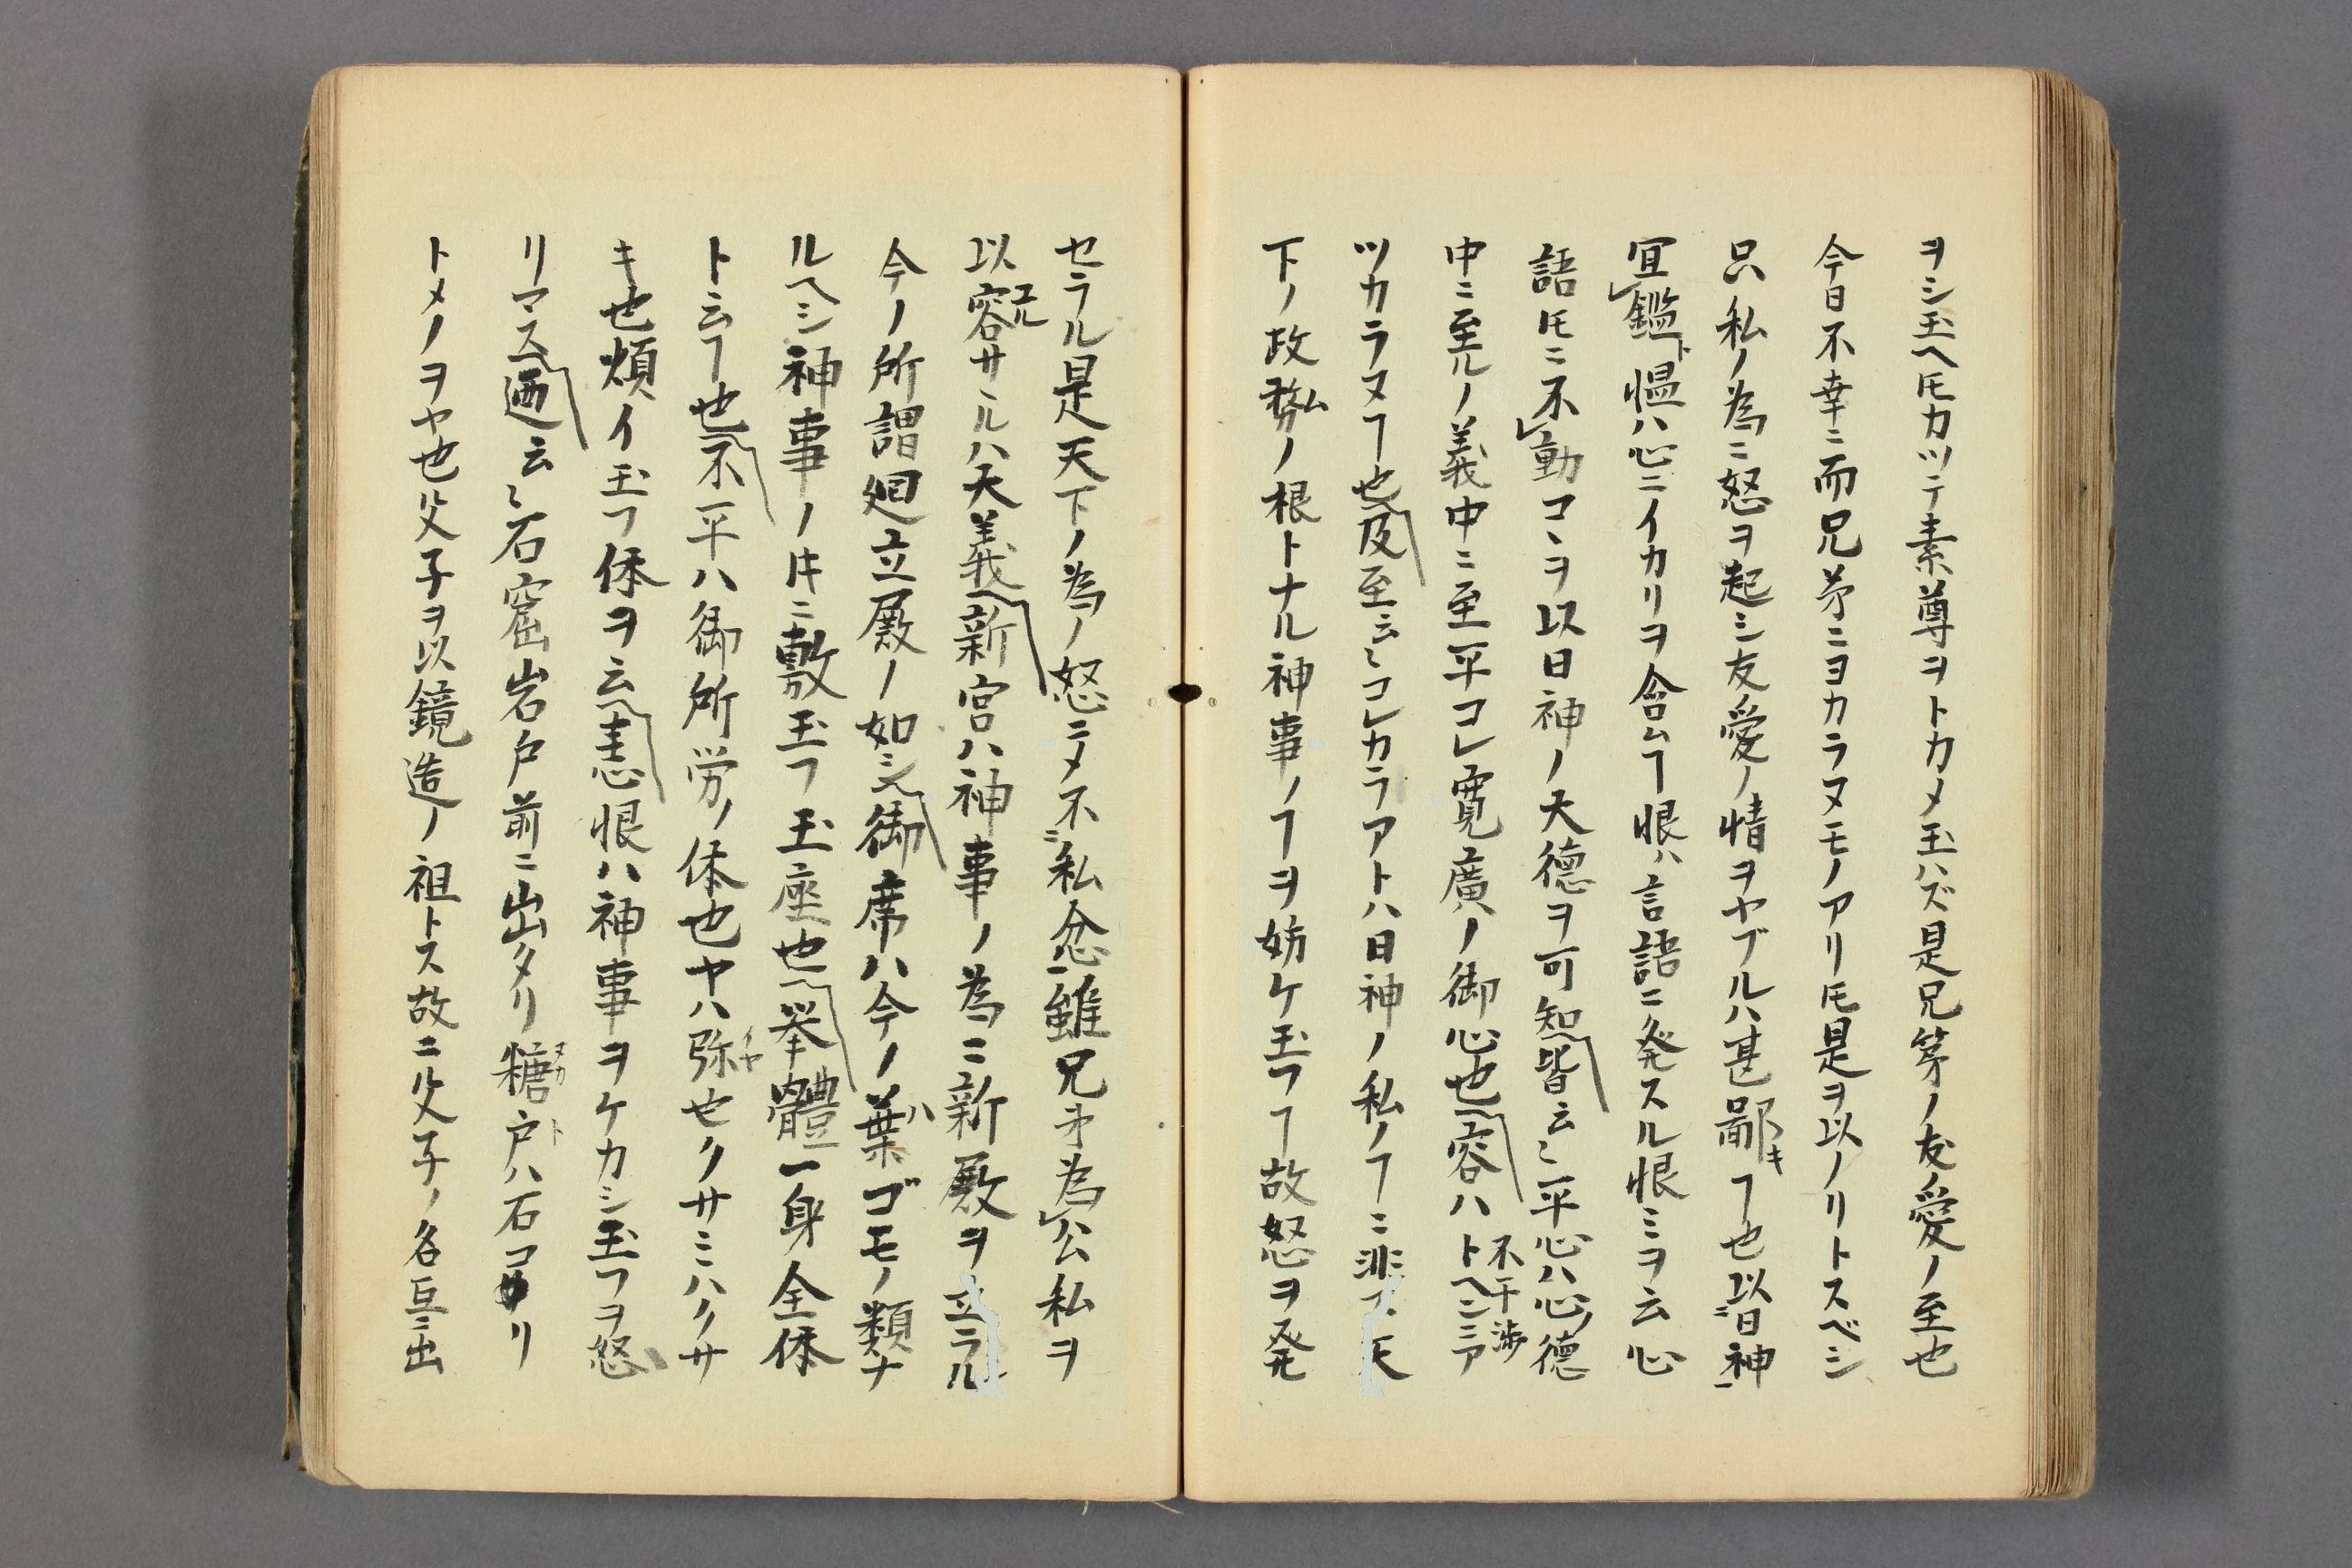 ヲシ玉ヘ𪜈カツテ素尊ヲトカメ玉ハズ是兄弟ノ友愛ノ至也
今日不幸ニ而兄弟ニヨカラヌモノアリ𪜈是ヲ以ノリトスベシ
只私ノ為ニ怒ヲ起シ友愛ノ情ヲヤブルハ甚鄙キヿ也以日神
宜鑑ト慍ハ心ニイカリヲ含ムヿ恨ハ言語ニ発スル恨ミヲ云心
語𪜈ニ不動コヽヲ以日神ノ大徳ヲ可知皆云〻平心ハ心徳
中ニ至ルノ義中ニ至平コレ寛廣ノ御心也容ハ不干渉トヘニア
ツカラヌヿ也及至云〻コレカラアトハ日神ノ私ノヿニ非ス天
下ノ政務ムノ根トナル神事ノヿヲ妨ケ玉フヿ故怒ヲ発
セラル是天下ノ為ノ怒ニメ不私忿雖兄弟為公私ヲ
以容ユルサヽルハ大義新宮ハ神事ノ為ニ新殿ヲ立ラル
今ノ所謂廻立殿ノ如シ御席ハ今ノ葉ハゴモノ類ナ
ルヘシ神事ノ𪜈ニ敷玉フ玉座也挙體一身全体
ト云ヿ也不平ハ御所労ノ体也ヤハ弥イヤ也クサミハクサ
キ也煩イ玉フ体ヲ云恚恨ハ神事ヲケカシ玉フヲ怒
リマス廼云〻石窟岩戸前ニ出タリ糠ヌカ戸トハ石コリ
トメノヲヤ也父子ヲ以鏡造ノ祖トス故ニ父子ノ名互ニ出